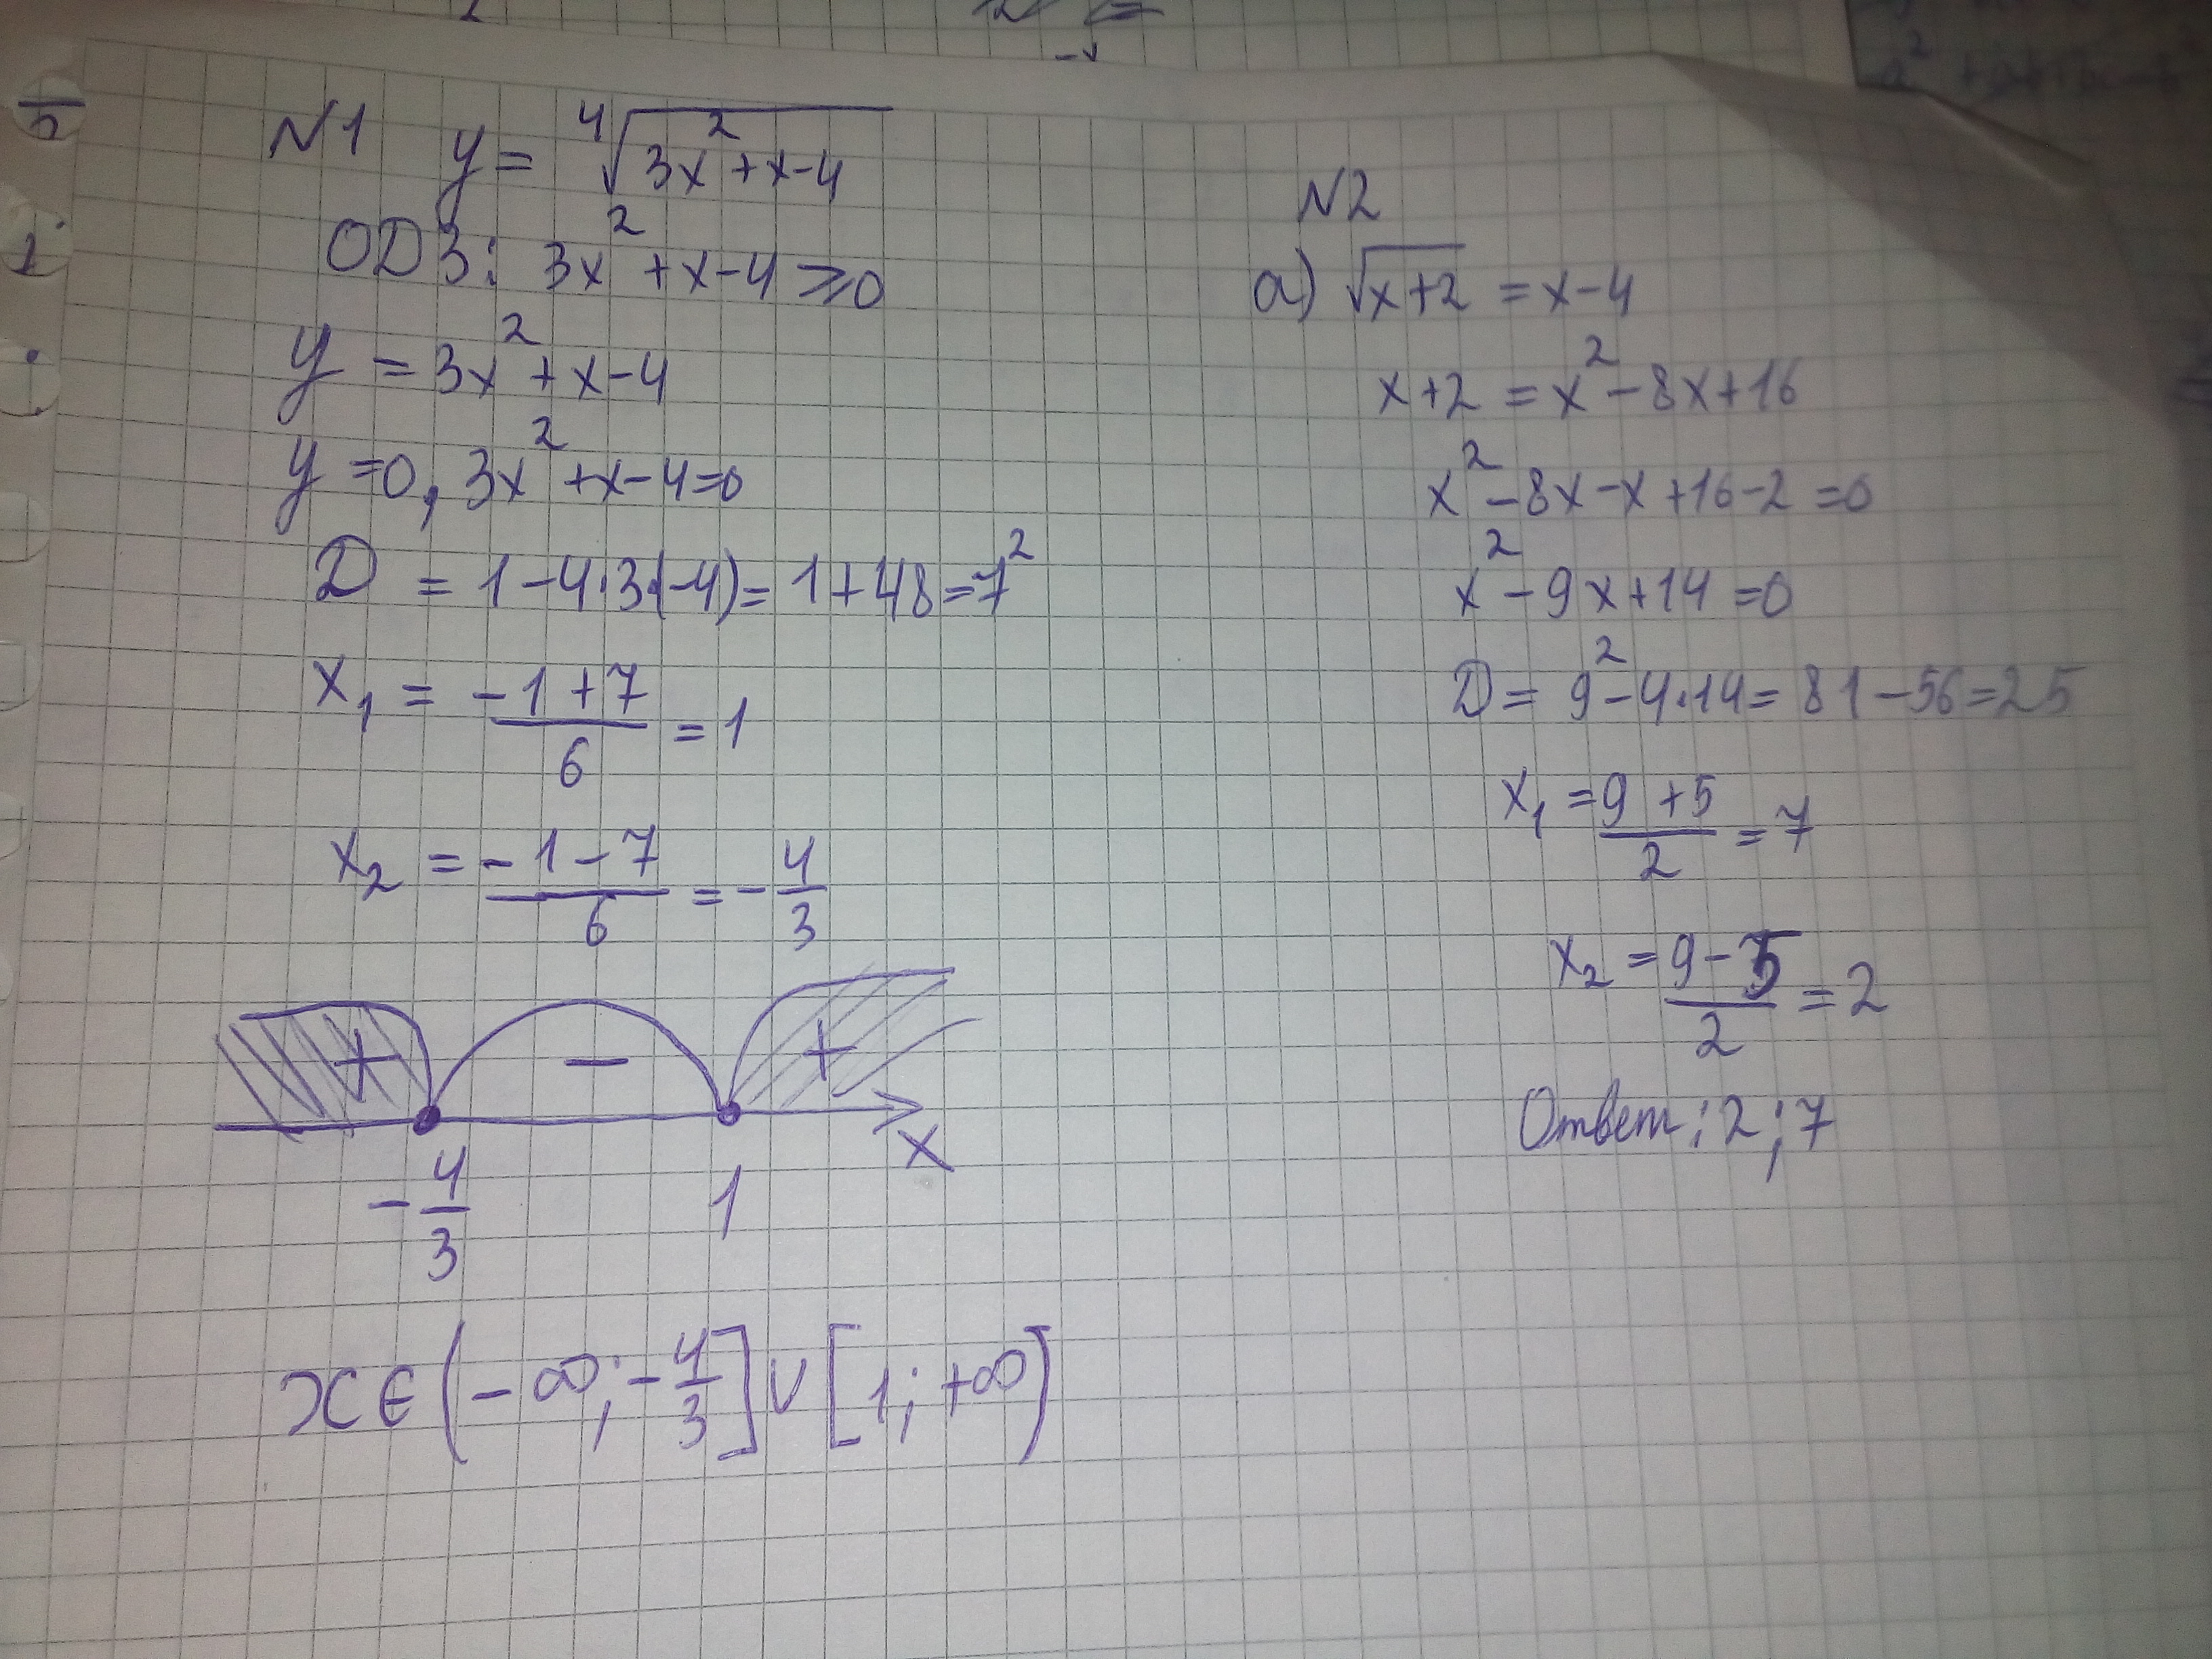 N1 y = ⁴√(3x²+x-4)
ОДЗ: 3x²+x-4 ⩾ 0
y = 3x²+x-4
y=0, 3x²+x-4=0
D = 1-4·3·(-4) = 1+48 = 7²
x₁ = (-1+7)/6 = 1
x₂ = (-1-7)/6 = -4/3
+ - +
-4/3 1 x
x ∈ (-∞; -4/3] ∪ [1; +∞)
N2
а) √(x+2) = x-4
x+2 = x²-8x+16
x²-8x-x+16-2=0
x²-9x+14=0
D = 9²-4·14 = 81-56=25
x₁ = (9+5)/2 = 7
x₂ = (9-5)/2 = 2
Ответ: 2; 7